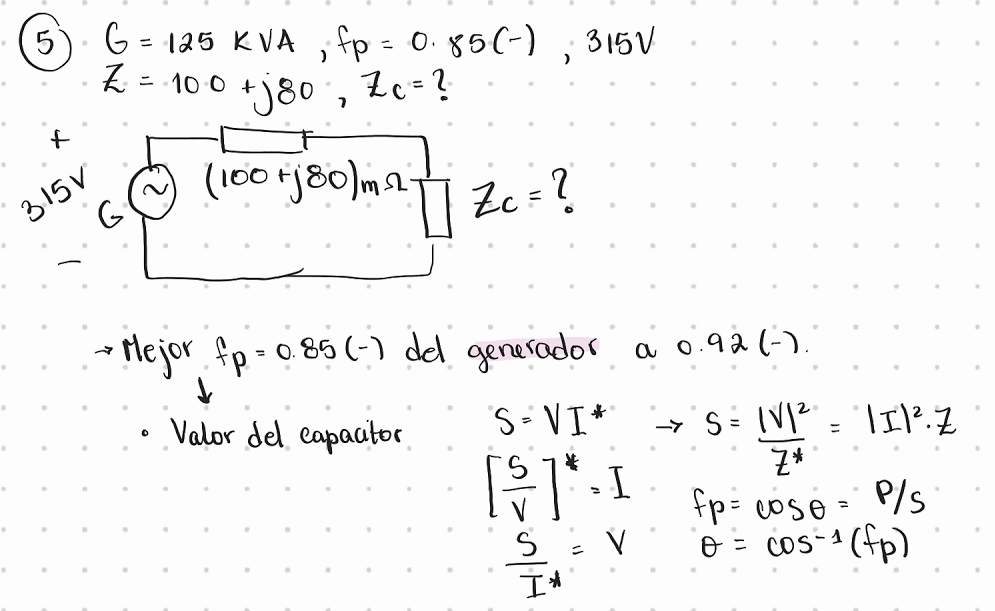 5 G = 125 KVA , fp = 0.85(-) , 315V
Z = 100 + j80 , Zc = ?
+
315V
G
-
(100 + j80)mΩ
Zc = ?
→ Mejor fp = 0.85(-) del generador a 0.92(-).
↓
• Valor del capacitor
S = VI* → S = |V|²/Z* = |I|²·Z
[S/V]* = I
fp = cosθ = P/S
S/I* = V
θ = cos⁻¹(fp)